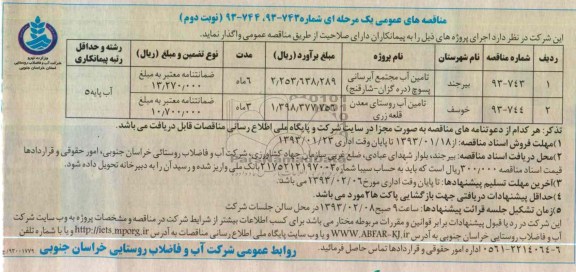 مناقصه های عمومی یک مرحله ای شماره ۷۴۳-۹۳، ۷۴۴-۹۳ (نوبت دوم)
این شرکت در نظر دارد اجرای پروژه های ذیل را به پیمانکاران دارای صلاحیت از طریق مناقصه عمومی واگذار نماید.
ردیف شماره مناقصه نام شهرستان نام پروژه مبلغ برآورد (ریال) مدت نوع تضمین و مبلغ (ریال) رشته و حداقل رتبه پیمانکاری
۱ ۹۳-۷۴۳ بیرجند تامین آب مجتمع آبرسانی پسوچ (دره گزان-شارقنج) ۲/۲۵۳/۶۳۸/۲۸۹ ۶ماه ضمانتنامه معتبر به مبلغ ۱۳/۲۷۰/۰۰۰ آب پایه۵
۲ ۹۳-۷۴۴ خوسف تامین آب روستای معدن قلعه زری ۱/۳۹۸/۳۷۷/۷۵۶ ۳ماه ضمانتنامه معتبر به مبلغ ۱۰/۷۰۰/۰۰۰
تذکر: هر کدام از دعوتنامه های مناقصه به صورت مجزا در سایت شرکت و پایگاه ملی اطلاع رسانی مناقصات قابل دریافت می باشد.
۱)مهلت فروش اسناد مناقصه: از ۱۳۹۳/۰۱/۱۸ تا پایان وقت اداری ۱۳۹۳/۰۱/۲۳
۲)محل دریافت اسناد مناقصه: بیرجند، بلوار شهدای عبادی، ضلع سازمان جهاد کشاورزی، شرکت آب و فاضلاب روستائی خراسان جنوبی، امور حقوقی و قراردادها
قیمت اسناد مناقصه ۳۰۰/۰۰۰ ریال است که باید به حساب سیبا شماره ۲۱۷۵۲۱۲۱۹۷۰۰۳ بانک ملی واریز شده و رسید آن را به دبیرخانه تحویل داده شود.
۳)آخرین مهلت تسلیم پیشنهادها: تا پایان وقت اداری مورخ ۱۳۹۳/۰۲/۰۶ می باشد.
۴)حداقل پیشنهادات دریافتی جهت بازگشایی پاکت ها ۲مورد می باشد.
۵)زمان تشکیل جلسه قرائت پیشنهادها: ساعت ۹ صبح ۱۳۹۳/۰۲/۰۸ در محل سالن جلسات شرکت
این شرکت در رد یا قبول پیشنهادات برابر قوانین و مقررات مربوطه مختار می باشد برای کسب اطلاعات بیشتر از شرایط شرکت در مناقصه و مشخصات پروژه به وب سایت شرکت
آب و فاضلاب روستایی خراسان جنوبی به آدرس WWW.ABFAR-KJ.ir و یا وب سایت پایگاه ملی اطلاع رسانی مناقصات به آدرس http://iets.mporg.ir و یا با شماره تلفن
۰۵۶۱-۲۲۱۴۰۶۴-۶ اداره امور حقوقی و قراردادها تماس حاصل فرمائید.
روابط عمومی شرکت آب و فاضلاب روستایی خراسان جنوبی